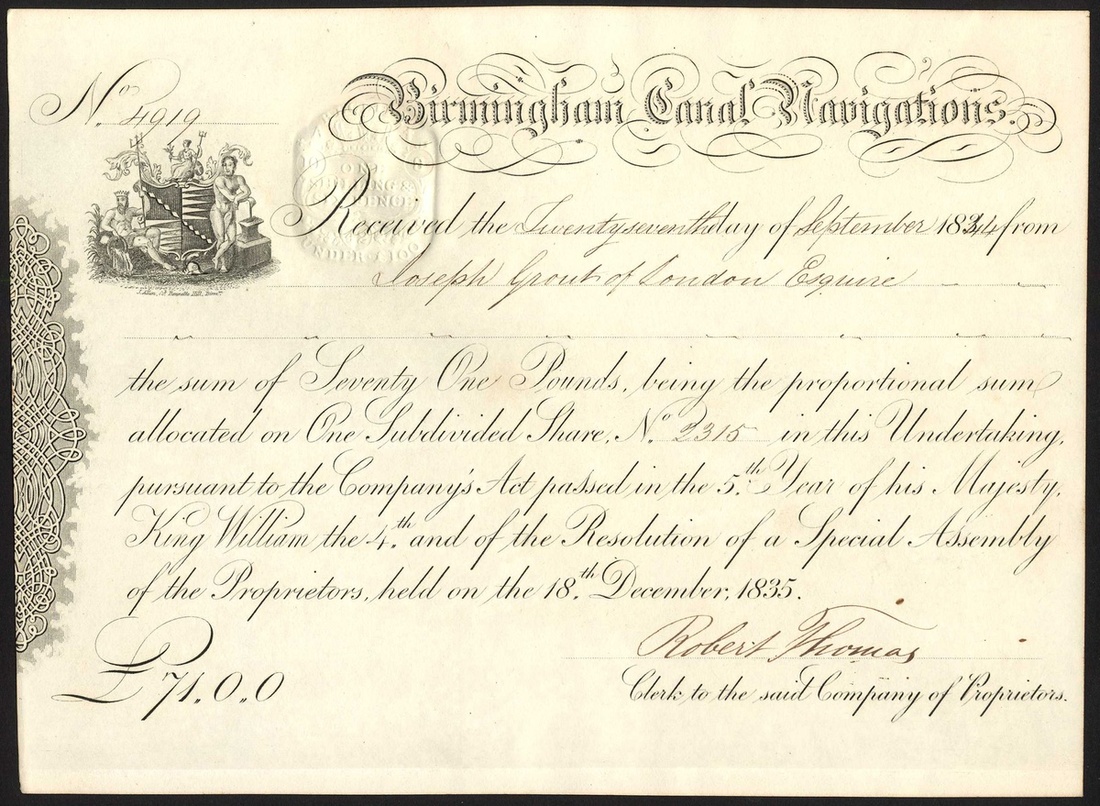 Birmingham Canal Navigations.
No. 4919
Received the Twentyseventh day of September 1844 from
Joseph Grout of London Esquire
the sum of Seventy One Pounds, being the proportional sum
allocated on One Subdivided Share, No. 2315 in this Undertaking,
pursuant to the Company's Act passed in the 5.th Year of his Majesty,
King William the 4.th and of the Resolution of a Special Assembly
of the Proprietors, held on the 18.th December, 1835.
£71.,0.,0
Robert Thomas
Clerk to the said Company of Proprietors.
ONE
SHILLING &
PENCE
UNDER £100